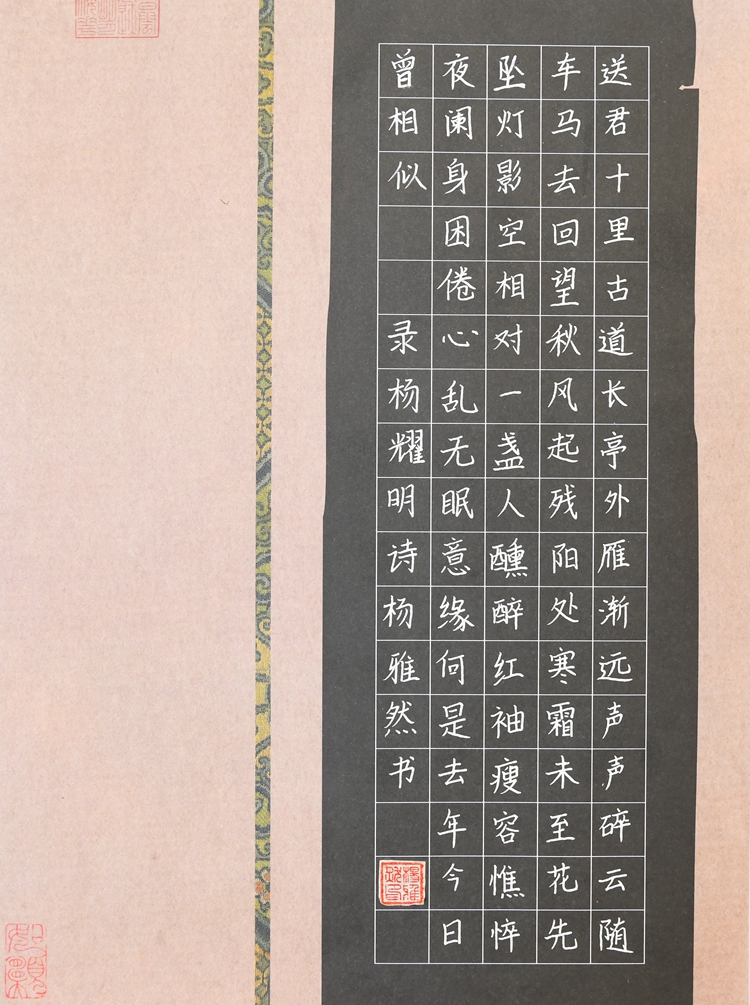 送君十里古道长亭外雁渐远声声碎云随
车马去回望秋风起残阳处寒霜未至花先
坠灯影空相对一盏人醺醉红袖瘦容憔悴
夜阑身困倦心乱无眠意缘何是去年今日
曾相似 录杨耀明诗杨雅然书